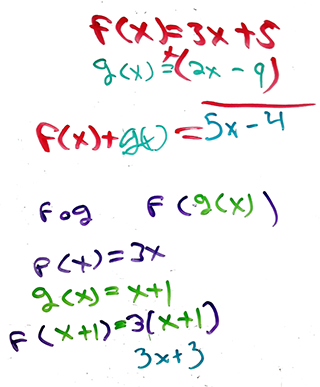 F(x)=3x+5
g(x)=+(2x-9)
F(x)+g(x)=5x-4
Fog F(g(x))
F(x)=3x
g(x)=x+1
F(x+1)=3(x+1)
3x+3